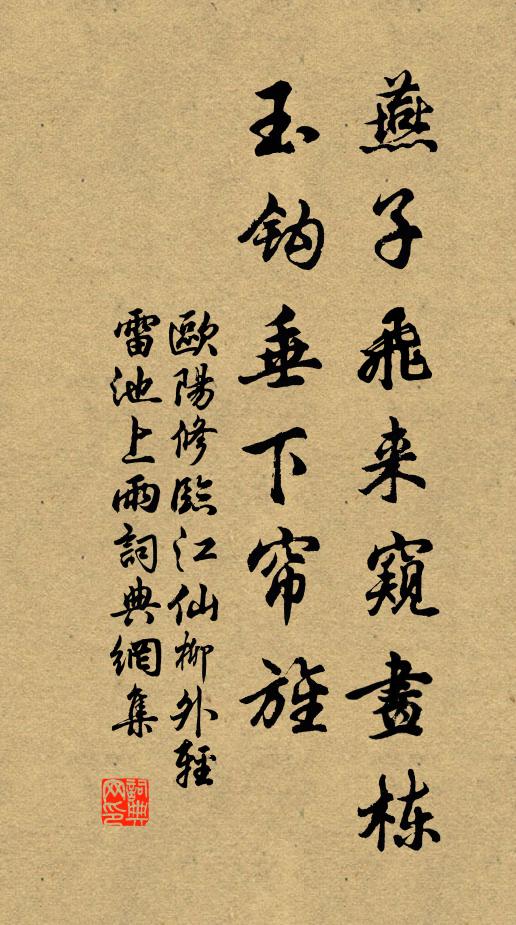 燕子飛来窺畫棟
玉鈎垂下帘旌
歐陽修臨江仙柳外輕
雷池上雨詞典網集
詞典
网印